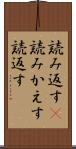 読み返す
読みかえす
読返す